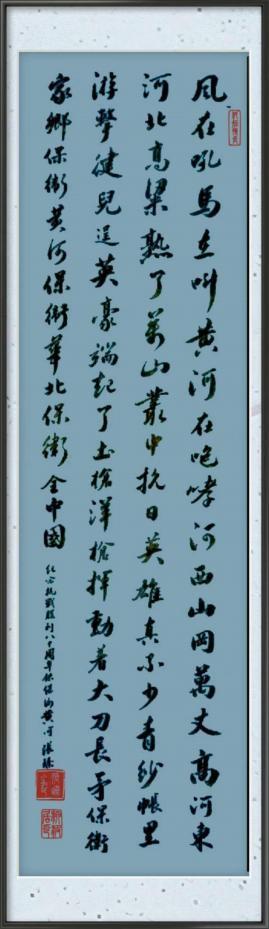 风在吼马在叫黄河在咆哮河西山冈万丈高河东
河北高梁熟了万山丛中抗日英雄真不少青纱帐里
游擊健兒逞英豪端起了土槍洋槍揮動着大刀長矛保衛
家鄉保衛黃河保衛華北保衛全中國
纪念抗战胜利八十周年保衛黄河